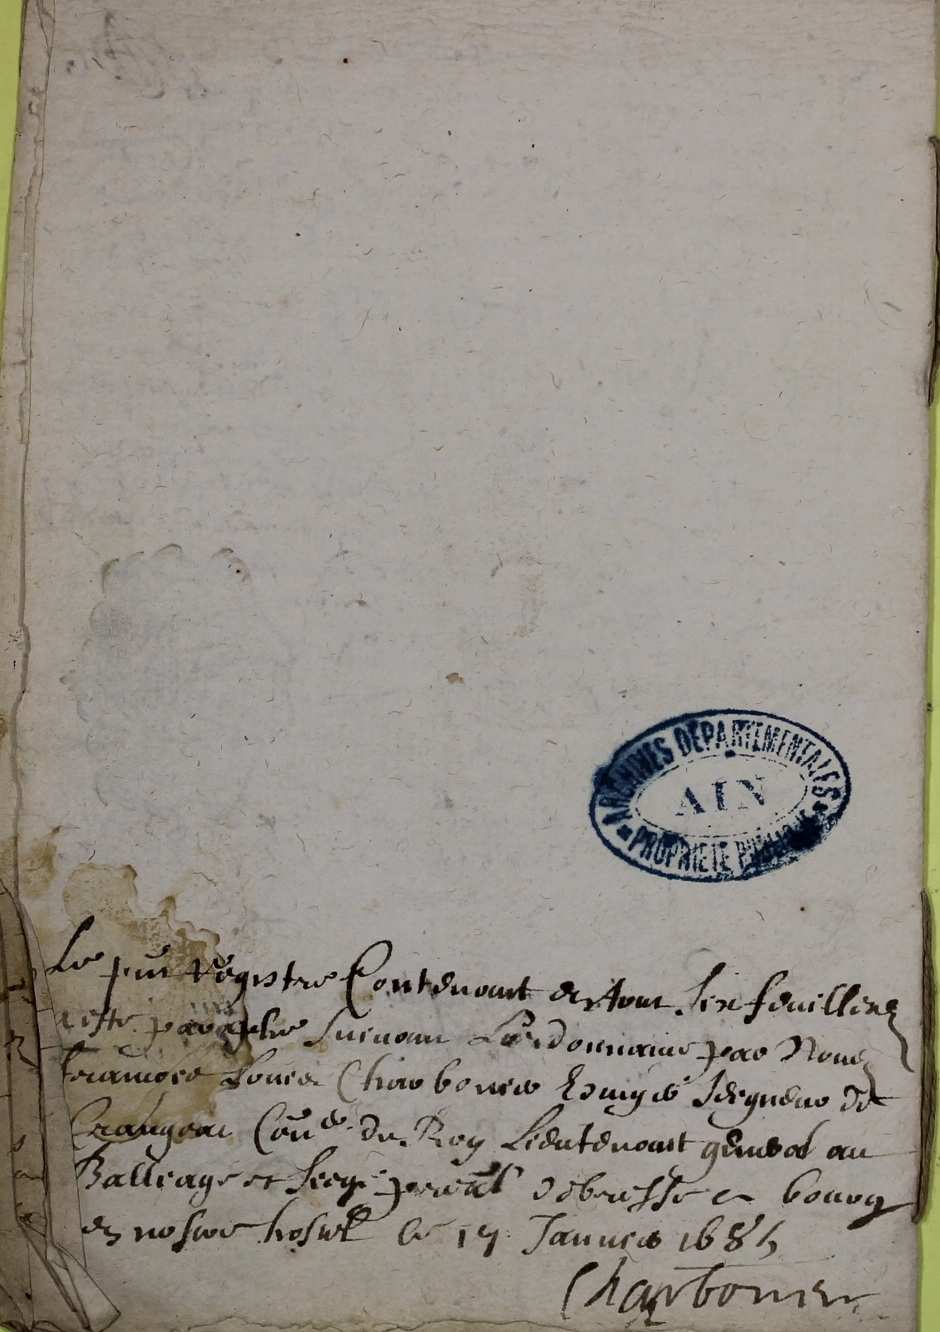 ARCHIVES DEPARTEMENTALES
AIN
PROPRIETE PUBLIQUE
Le pnt Registre Contenant en tout six feuilletz
a esté paraphe suivant L'ordonnance par Nous
francois Louis Charbonier Escuyer seigneur de
Crangeac Coner du Roy Lieutenant general au
Balliage et siege presal de bresse a bourg
en nostre hostel le 17 Janvier 1685
Charbonier